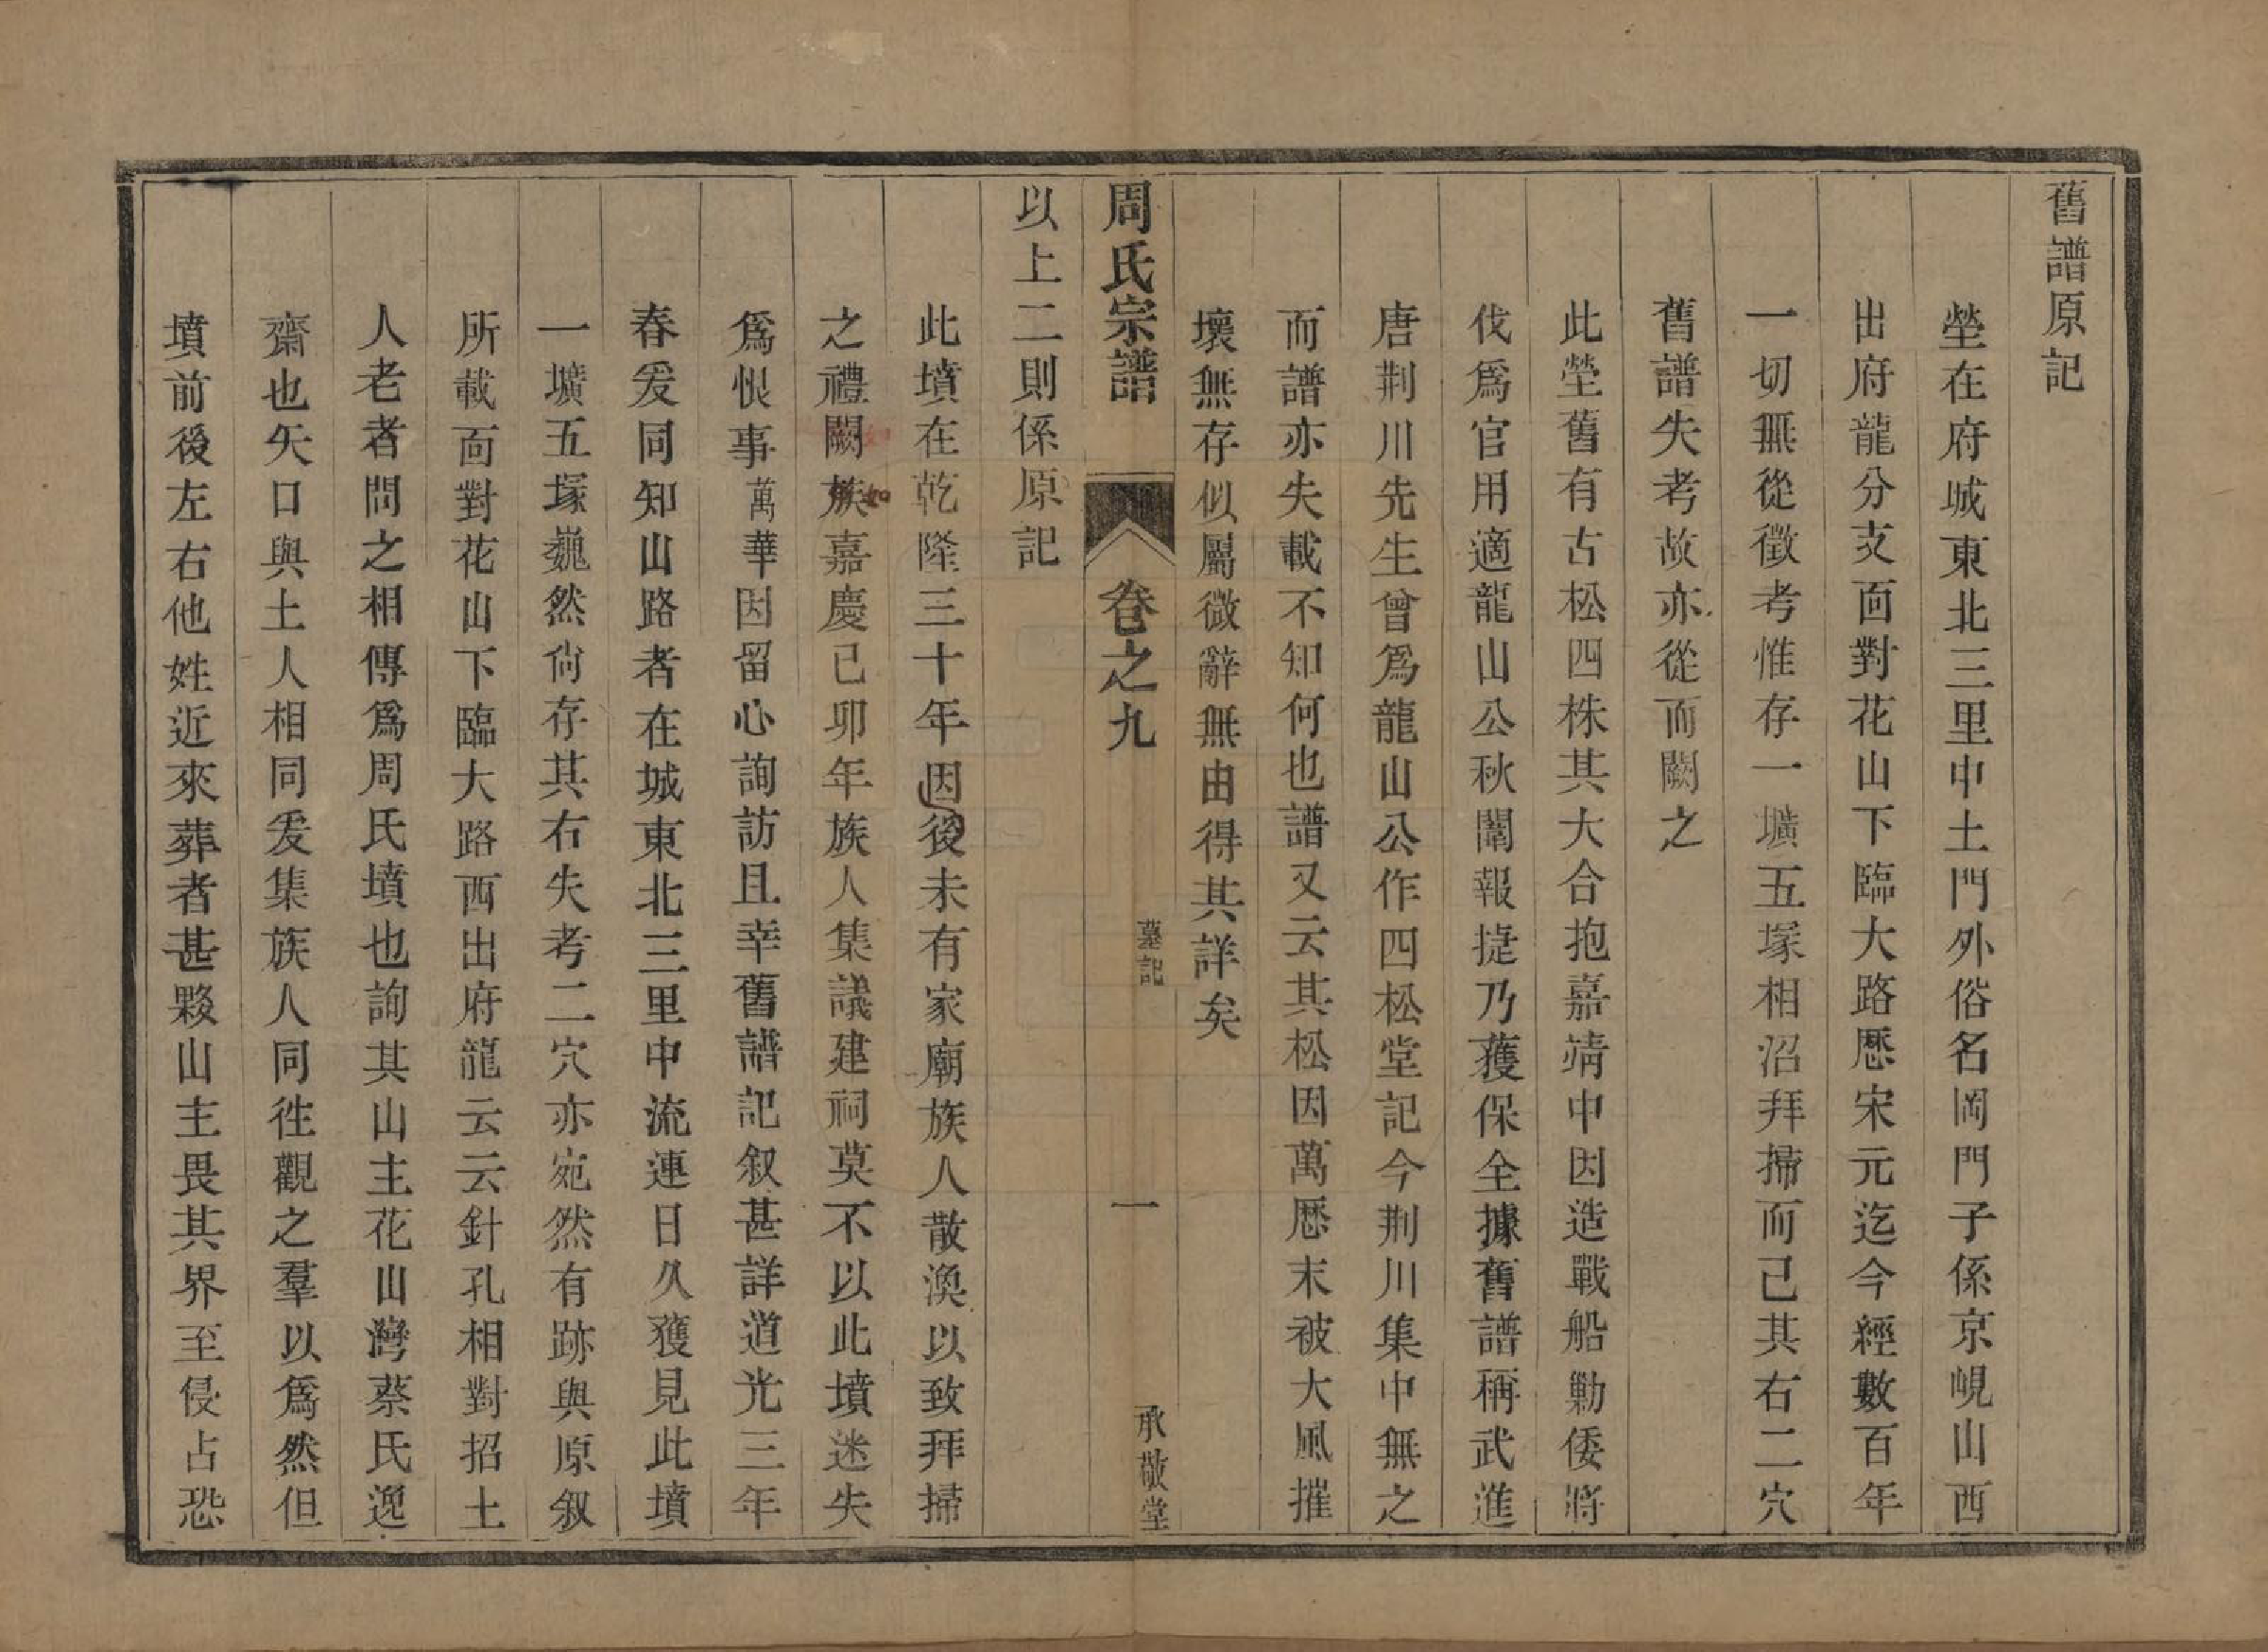 舊譜原記
塋在府城東北三里中土門外俗名岡門子係京峴山西
出府龍分支面對花山下臨大路歷宋元迄今經數百年
一切無從徵考惟存一壙五塚相沿拜掃而已其右二穴
舊譜失考故亦從而闕之
此塋舊有古松四株其大合抱嘉靖中因造戰船勦倭將
伐爲官用適龍山公秋闈報捷乃獲保全據舊譜稱武進
唐荆川先生曾爲龍山公作四松堂記今荆川集中無之
而譜亦失載不知何也譜又云其松因萬歷末被大風摧
壞無存似屬微辭無由得其詳矣
周氏宗譜
卷之九
墓記
一
承敬堂
以上二則係原記
此墳在乾隆三十年因後未有家廟族人散渙以致拜掃
之禮闕族嘉慶己卯年族人集議建祠莫不以此墳迷失
爲恨事萬華因留心詢訪且幸舊譜記叙甚詳道光三年
春爰同知山路者在城東北三里中流連日久獲見此墳
一壙五塚巍然尙存其右失考二穴亦宛然有跡與原叙
所載面對花山下臨大路西出府龍云云針孔相對招土
人老者問之相傳爲周氏墳也詢其山主花山灣蔡氏逸
齋也矢口與土人相同爰集族人同徃觀之羣以爲然但
墳前後左右他姓近來葬者甚夥山主畏其界至侵占恐